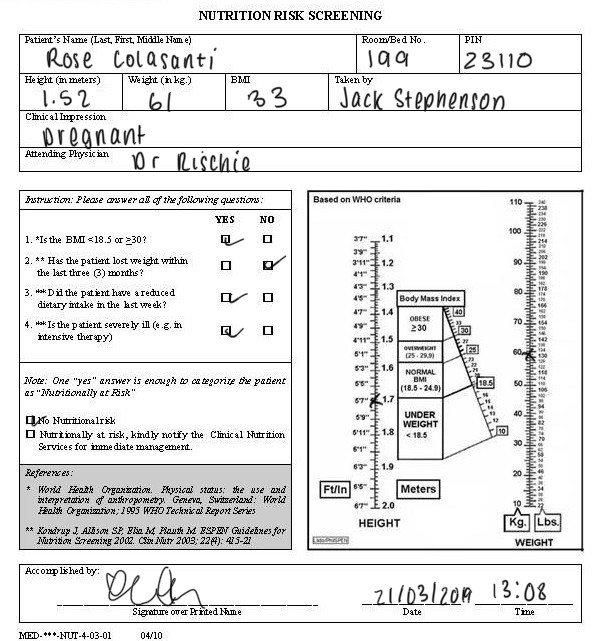 NUTRITION RISK SCREENING
Patient's Name (Last, First, Middle Name) Room/Bed No. PIN
Rose Colasanti 199 23110
Height (in meters) Weight (in kg.) BMI Taken by
1.52 61 33 Jack Stephenson
Clinical Impression
pregnant
Attending Physician Dr Rischie
Instruction: Please answer all of the following questions:
YES NO
1. *Is the BMI <18.5 or ≥30?
2. ** Has the patient lost weight within
the last three (3) months?
3. **Did the patient have a reduced
dietary intake in the last week?
4. **Is the patient severely ill (e.g. in
intensive therapy)
Note: One "yes" answer is enough to categorize the patient
as "Nutritionally at Risk"
No Nutritional risk
Nutritionally at risk, kindly notify the Clinical Nutrition
Services for immediate management.
References:
* World Health Organization. Physical status: the use and
interpretation of anthropometry. Geneva, Switzerland: World
Health Organization; 1995 WHO Technical Report Series
** Kondrup J, Allison SP, Elia M, Plauth M. ESPEN Guidelines for
Nutrition Screening 2002. Clin Nutr 2003; 22(4): 415-21
Based on WHO criteria
3'7" 1.1
3'9"
3'11" 1.2
4'1"
4'3" 1.3
4'5"
4'7" 1.4
4'9"
4'11" 1.5
5'1"
5'3" 1.6
5'5"
5'7" 1.7
5'9"
5'11" 1.8
6'1"
6'3" 1.9
6'5"
6'7" 2.0
Ft/In Meters
HEIGHT
Body Mass Index
OBESE
≥30
OVERWEIGHT
(25 - 29,9)
NORMAL
BMI
(18.5 - 24.9)
UNDER
WEIGHT
< 18.5
40
30
25
18.5
10
110
100
90
80
70
60
50
40
30
20
10
Kg. Lbs.
WEIGHT
Accomplished by:
21/03/2019 13:08
Signature over Printed Name Date Time
MED-***-NUT-4-03-01 04/10